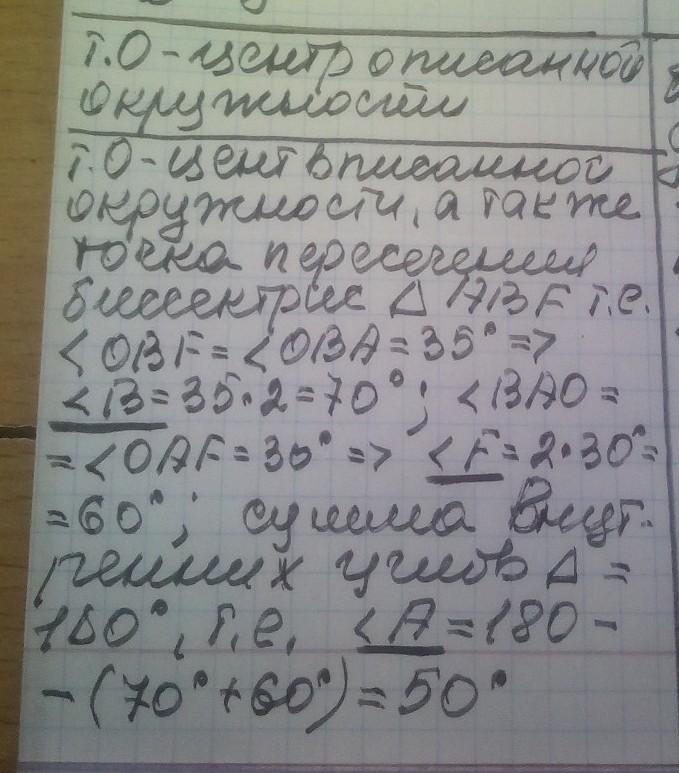 т.О - центр описанной
окружности
т.О - цент вписанной
окружности, а также
точка пересечения
биссектрис Δ ABF т.е.
<OBF = <OBA = 35° =>
<B = 35·2 = 70°; <BAO =
= <OAF = 30° => <F = 2·30° =
= 60°; сумма внут-
ренних углов Δ =
180°, т.е. <A = 180 -
- (70° + 60°) = 50°